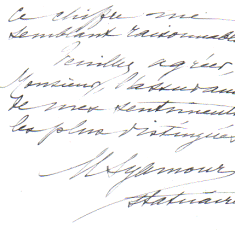 ce chiffre me
semblant raisonnable
Veuillez agréer,
Monsieur, l'assuran
de mes sentiments
les plus distingués
M Syamour
Statuaire